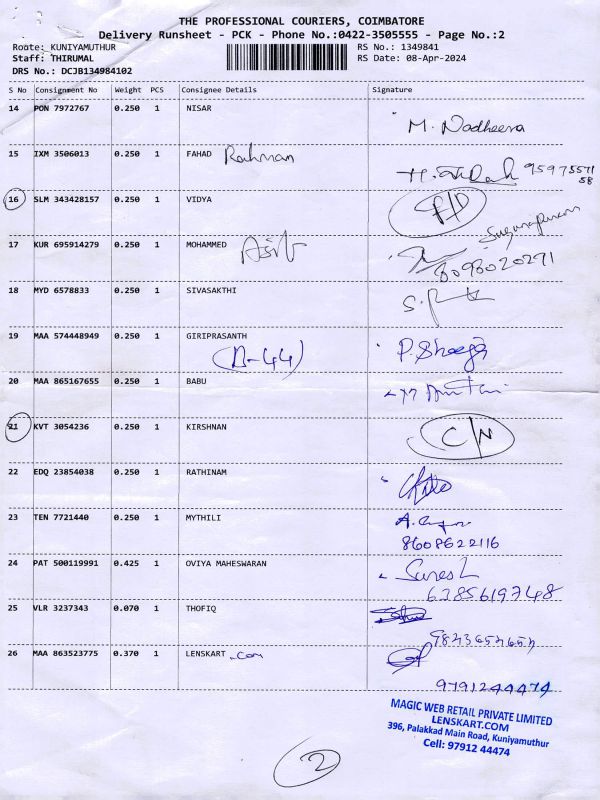 THE PROFESSIONAL COURIERS, COIMBATORE
Delivery Runsheet - PCK - Phone No.:0422-3505555 - Page No.:2
Route: KUNIYAMUTHUR RS No.: 1349841
Staff: THIRUMAL RS Date: 08-Apr-2024
DRS No.: DCJB134984102
S No Consignment No Weight PCS Consignee Details Signature
14 PON 7972767 0.250 1 NISAR
M. Nadheera
15 IXM 3506013 0.250 1 FAHAD Rahman
9597557158
16 SLM 343428157 0.250 1 VIDYA
F/D
17 KUR 695914279 0.250 1 MOHAMMED Asib
8098020271
18 MYD 6578833 0.250 1 SIVASAKTHI
19 MAA 574448949 0.250 1 GIRIPRASANTH
(B-44)
20 MAA 865167655 0.250 1 BABU
21 KVT 3054236 0.250 1 KIRSHNAN
C/N
22 EDQ 23854038 0.250 1 RATHINAM
23 TEN 7721440 0.250 1 MYTHILI
8608622116
24 PAT 500119991 0.425 1 OVIYA MAHESWARAN
Suresh
6385619748
25 VLR 3237343 0.070 1 THOFIQ
26 MAA 863523775 0.370 1 LENSKART .com
9791244474
MAGIC WEB RETAIL PRIVATE LIMITED
LENSKART.COM
396, Palakkad Main Road, Kuniyamuthur
Cell: 97912 44474
2